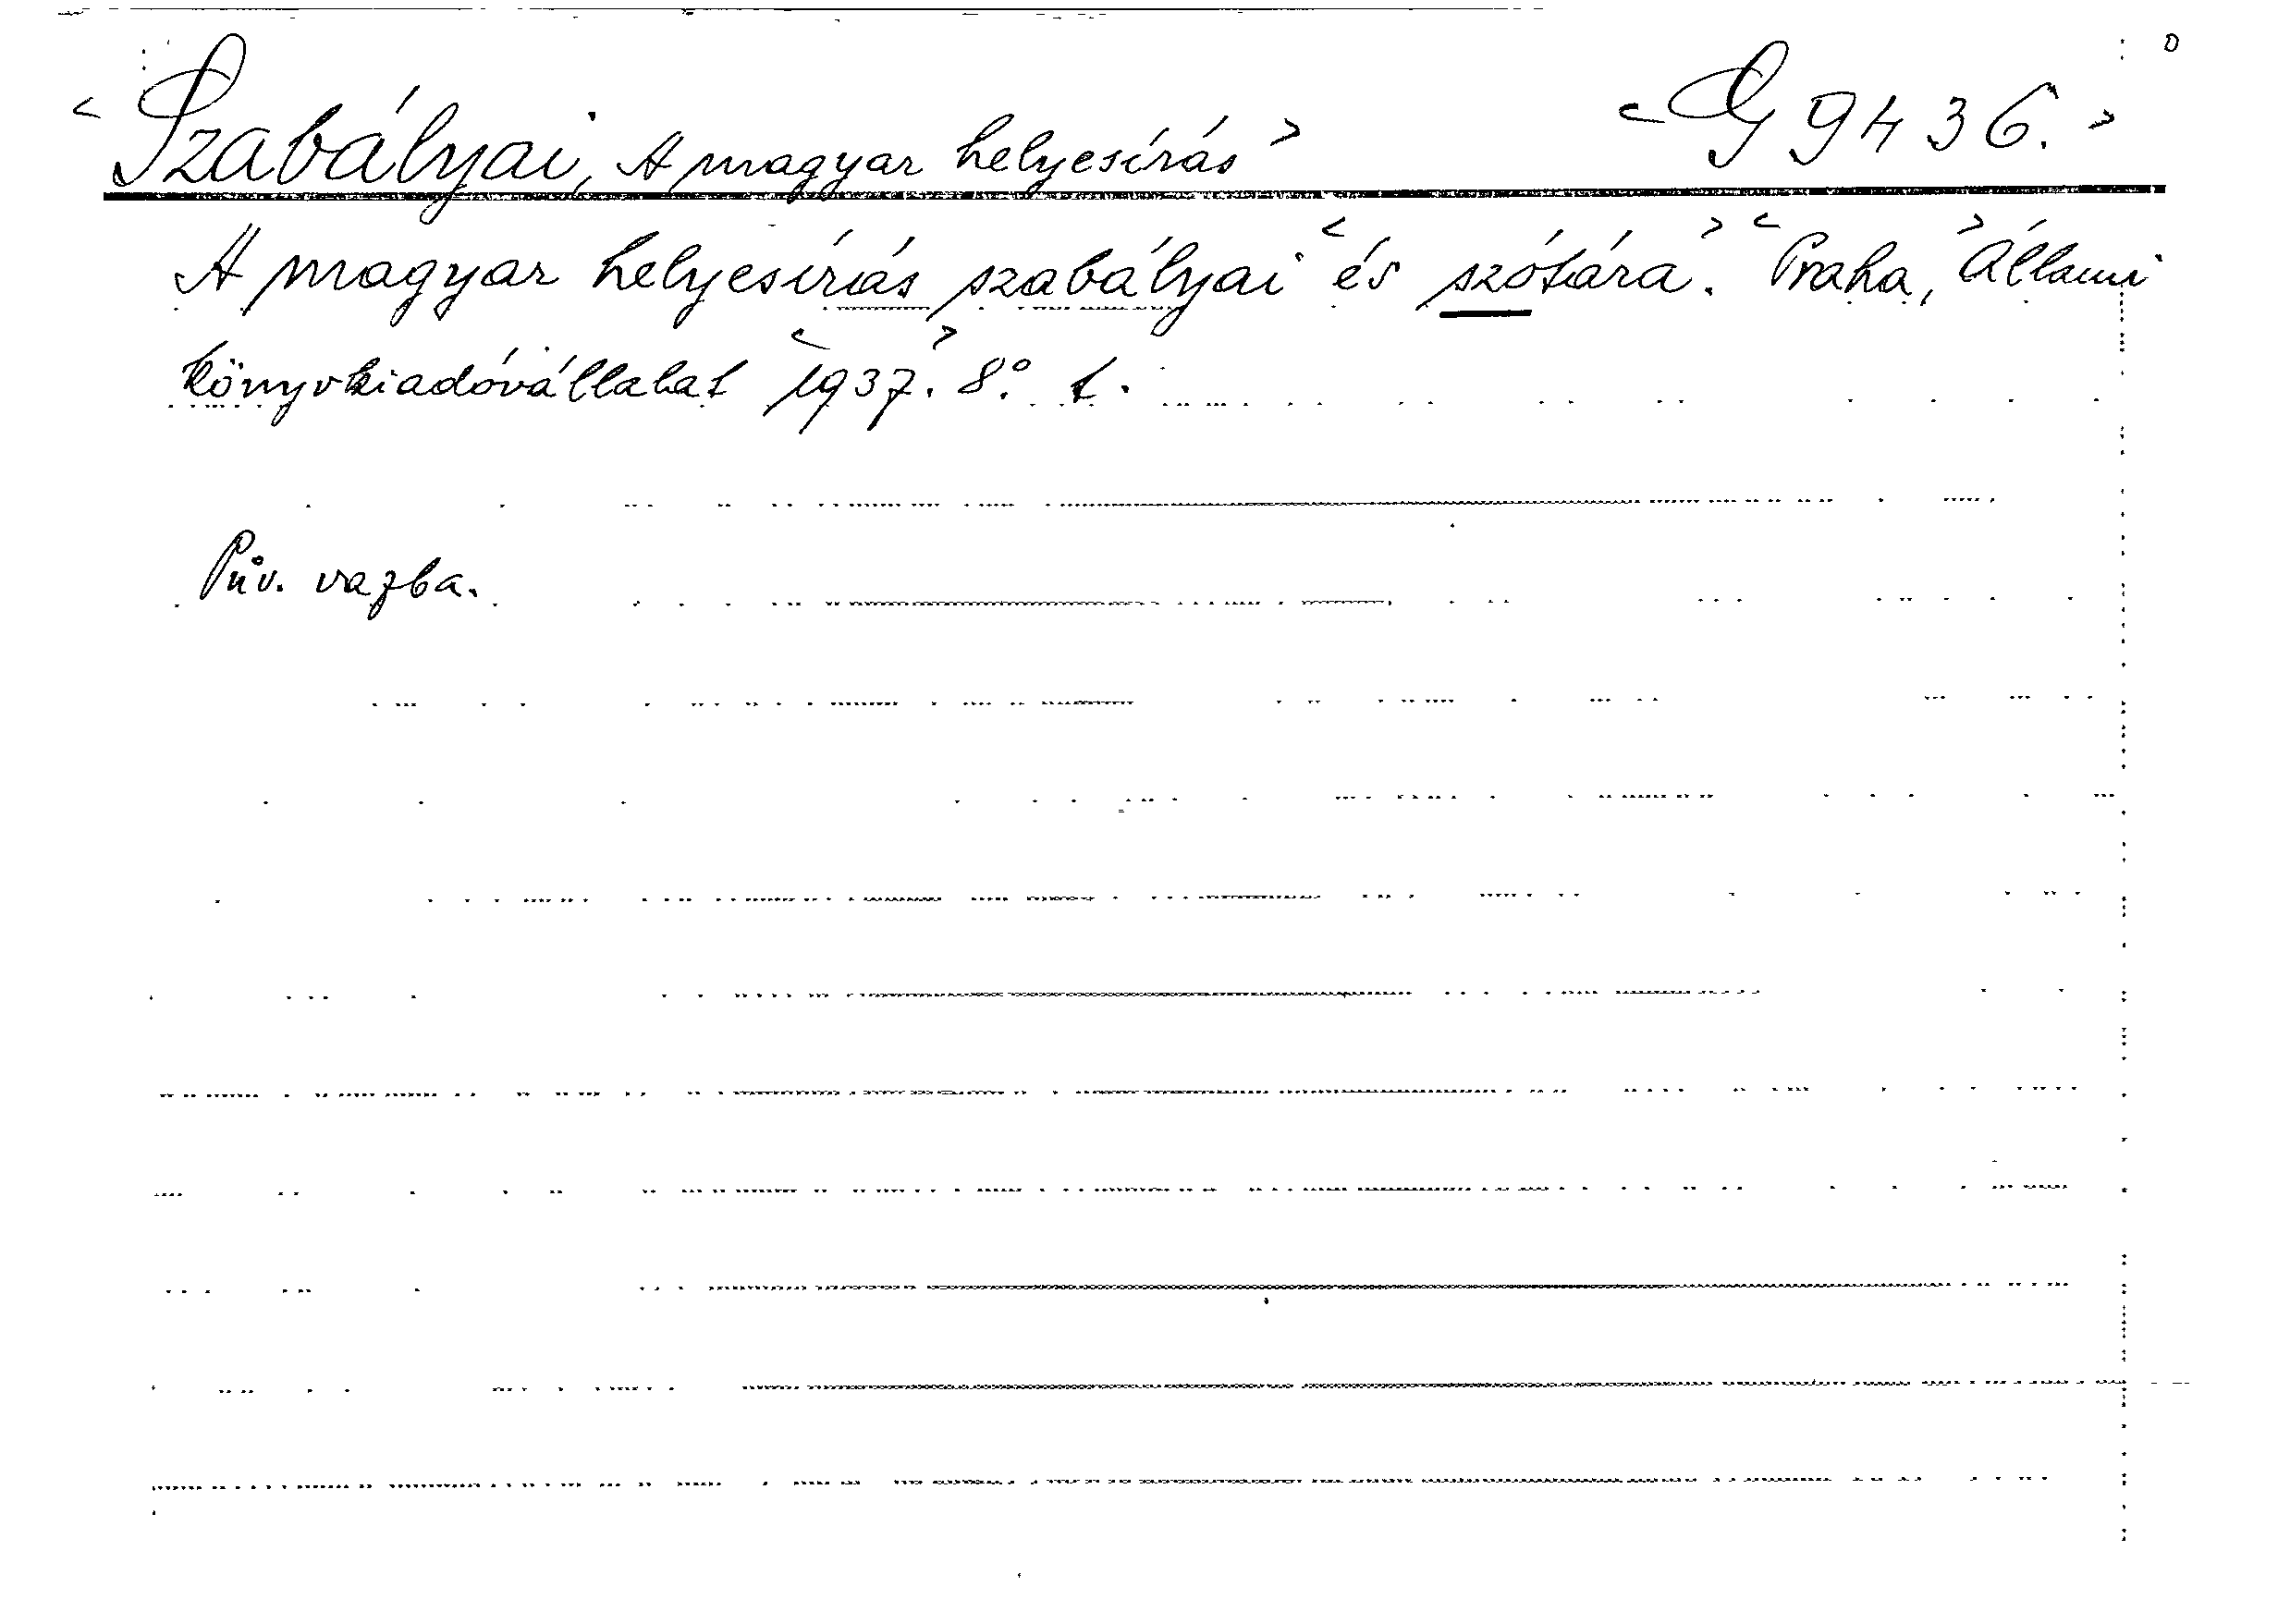 <Szabályai, A magyar helyesírás> <G 9436.>
A magyar helyesírás szabályai <és szótára.> <Praha,> Állami
könyvkiadóvállalat <1937.> 8° t.
Pův. vazba.